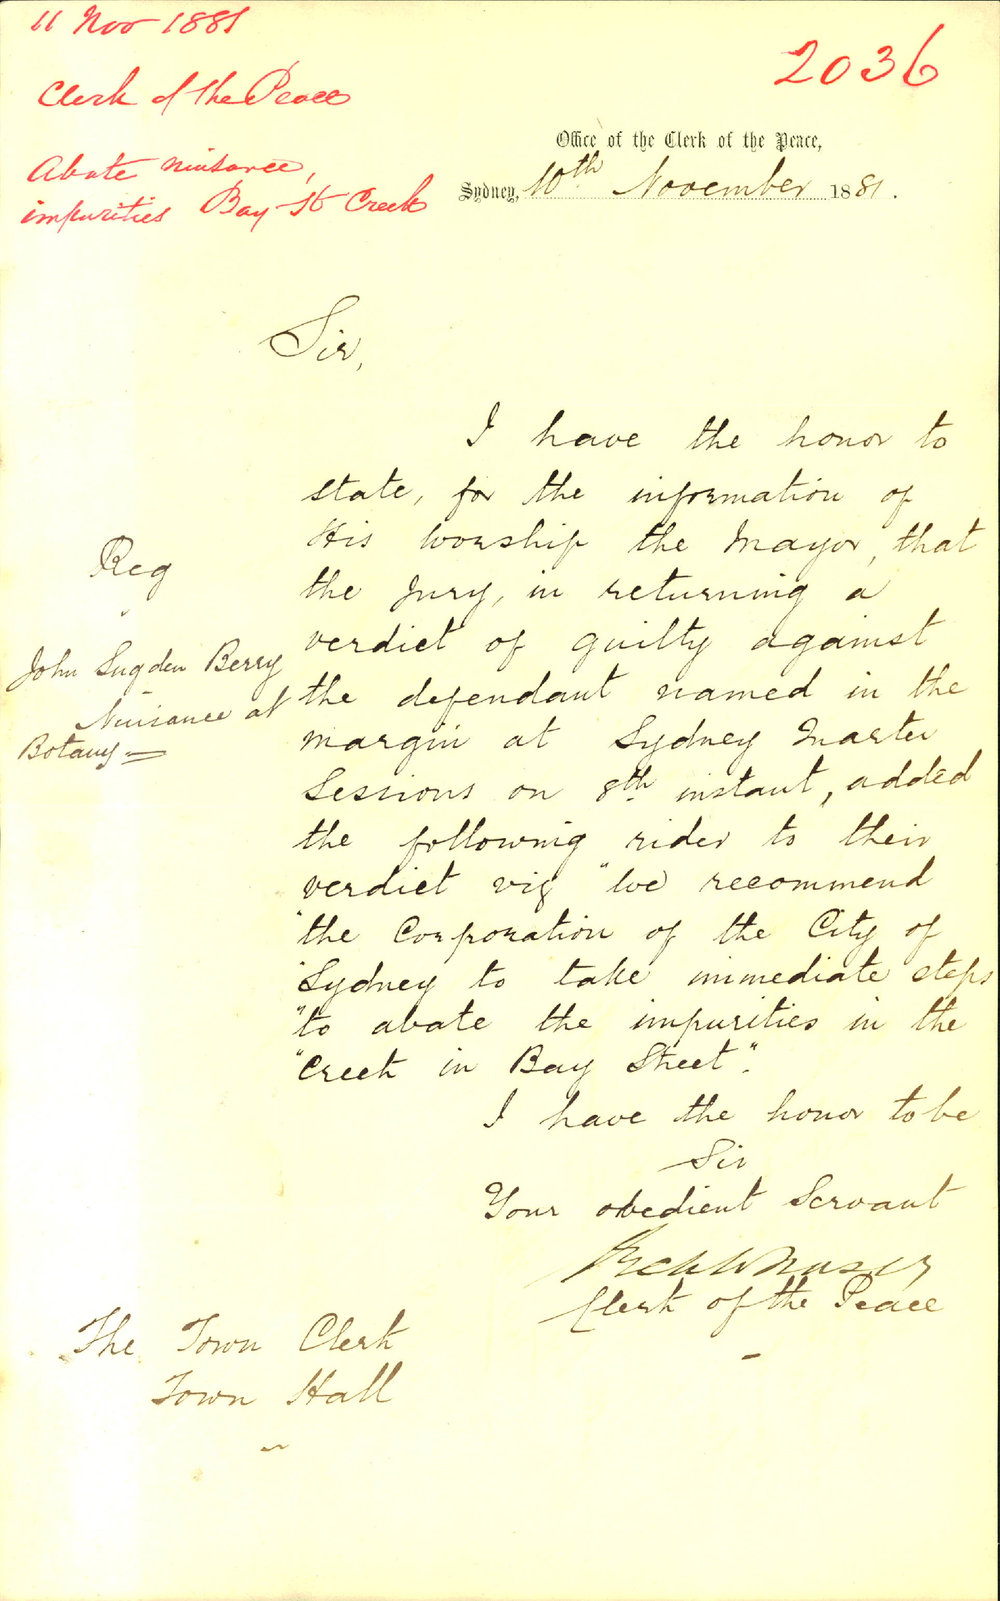 11 Nov 1881
2036
Clerk of the Peace
Abate nuisance,
impurities Bay St Creek
Office of the Clerk of the Peace,
Sydney, 10th November 1881.
Sir,
I have the honor to
state, for the information of
His Worship the Mayor, that
the Jury, in returning a
verdict of guilty against
the defendant named in the
margin at Sydney Quarter
Sessions on 8th instant, added
the following rider to their
verdict viz "We recommend
"the Corporation of the City of
"Sydney to take immediate steps
"to abate the impurities in the
"Creek in Bay Street".
Reg
v
John Sugden Berry
Nuisance at
Botany
I have the honor to be
Sir
Your obedient Servant
Clerk of the Peace
The Town Clerk
Town Hall